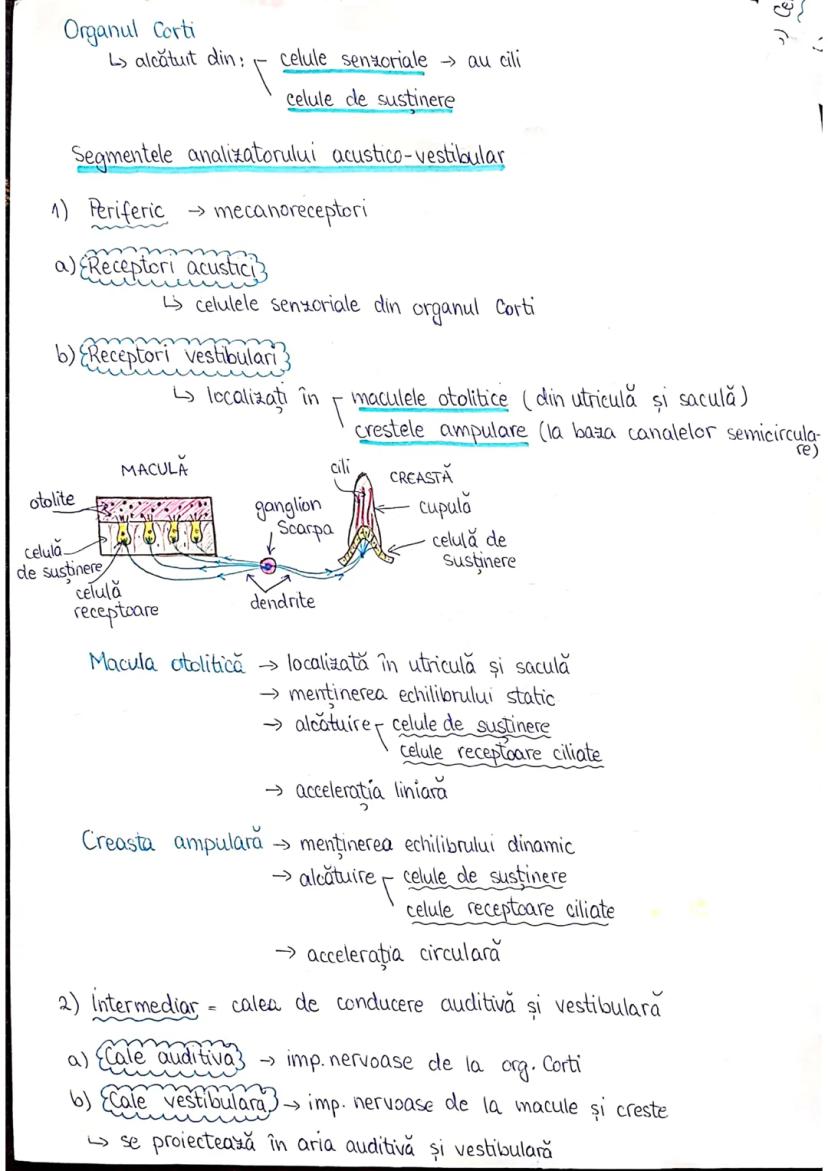 Organul Corti
↳ alcătuit din: celule senzoriale → au cili
celule de susținere
Segmentele analizatorului acustico-vestibular
1) Periferic → mecanoreceptori
a) Receptori acustici
↳ celulele senzoriale din organul Corti
b) Receptori vestibulari
↳ localizați în maculele otolitice (din utriculă și saculă)
crestele ampulare (la baza canalelor semicircula-
re)
MACULĂ
cili
CREASTĂ
otolite
ganglion
Scarpa
cupulă
celulă
de susținere
celulă de
susținere
celulă
receptoare
dendrite
Macula otolitică → localizată în utriculă și saculă
→ menținerea echilibrului static
→ alcătuire celule de susținere
celule receptoare ciliate
→ accelerația liniară
Creasta ampulară → menținerea echilibrului dinamic
→ alcătuire celule de susținere
celule receptoare ciliate
→ accelerația circulară
2) Intermediar = calea de conducere auditivă și vestibulară
a) Cale auditivă → imp. nervoase de la org. Corti
b) Cale vestibulară → imp. nervoase de la macule și creste
↳ se proiectează în aria auditivă și vestibulară